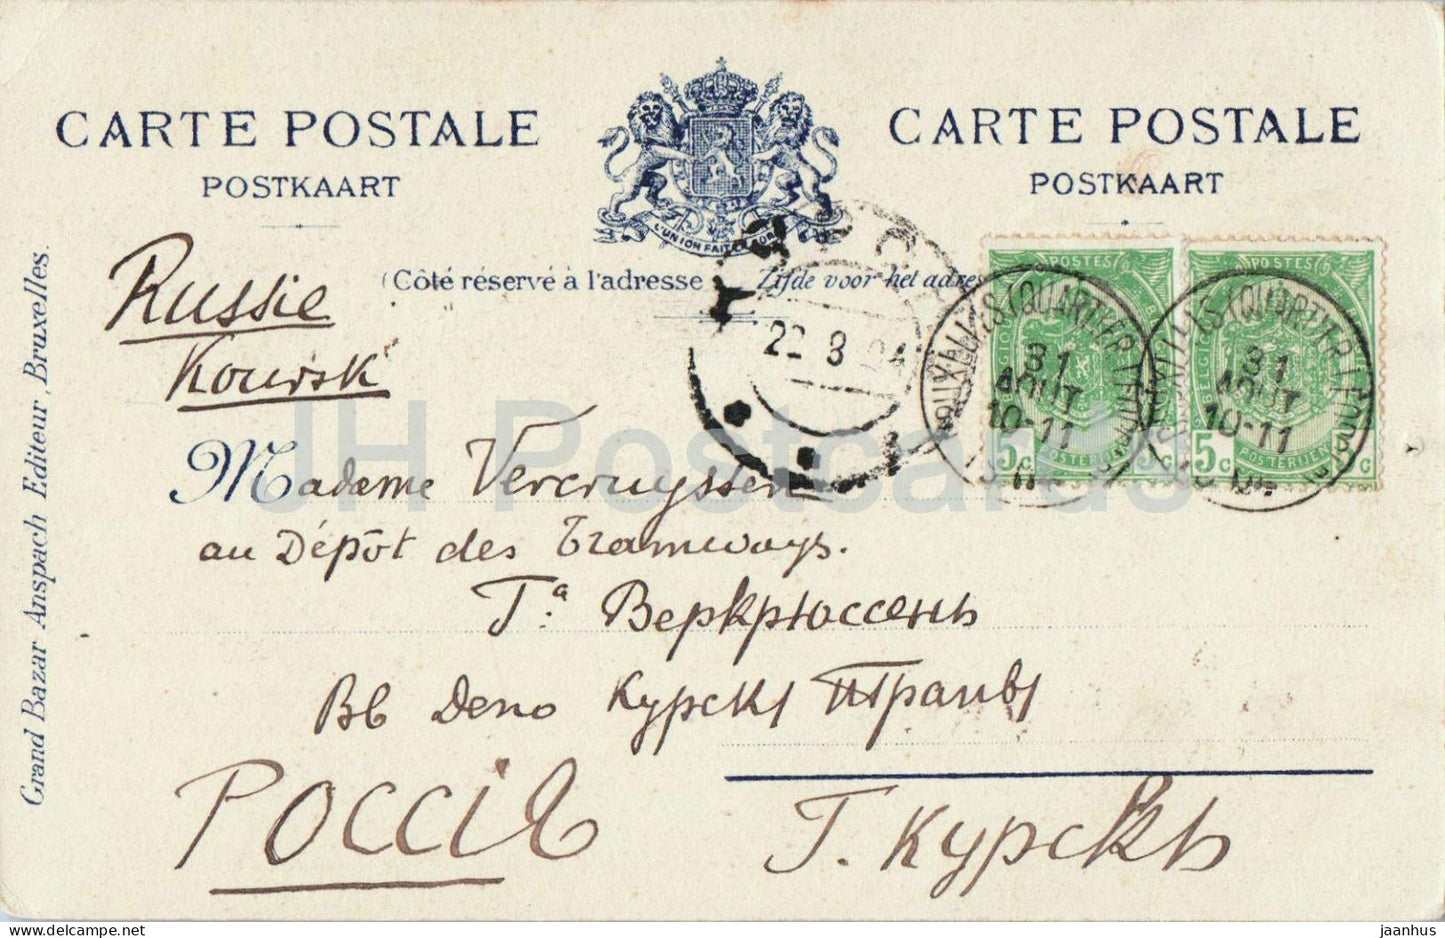 CARTE POSTALE
POSTKAART
CARTE POSTALE
POSTKAART
L'UNION FAIT
(Côté réservé à l'adresse
Zijde voor het adres
Russie
Koursk
22 8 04
POSTES
31
AOUT
10-11
04
5c
POSTERIJEN
POSTES
BRUXELLES (QUARTIER LEOPOLD)
31
AOUT
10-11
04
5c
POSTERIJEN
Madame Vercruyssen
au Dépôt des Tramways.
Га Веркрюссень
Въ Депо Курск Трамв
РОССІЯ
Г. Курскъ
Grand Bazar Anspach Editeur, Bruxelles.
JH Postcards
jaanhus